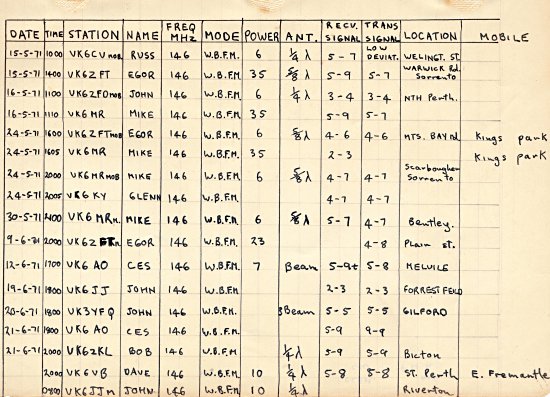 DATE TIME STATION NAME FREQ MHz MODE POWER ANT. RECV. SIGNAL TRANS SIGNAL LOCATION MOBILE
15-5-71 1000 VK6CV mob RUSS 146 W.B.F.M. 6 ¼λ 5-7 LOW DEVIAT. WELINGT. ST.
15-5-71 1400 VK6ZFT EGOR 146 W.B.F.M 35 ⅝λ 5-9 5-7 WARWICK Rd. Sorrento
16-5-71 1100 VK6ZFO mob JOHN 146 W.B.F.M. 6 ¼λ 3-4 3-4 NTH Perth.
16-5-71 1110 VK6MR MIKE 146 W.B.F.M. 35 5-9 5-7
24-5-71 1600 VK6ZFT mob EGOR 146 W.B.F.M. 6 ⅝λ 4-6 4-6 MTS. BAY Rd. Kings park
24-5-71 1605 VK6MR MIKE 146 W.B.F.M. 35 2-3 Kings park
24-5-71 2000 VK6MR MOB MIKE 146 W.B.F.M. 6 ⅝λ 4-7 4-7 Sorrento
24-5-71 2005 VK6KY GLENN 146 W.B.F.M. 4-7 4-7
30-5-71 2400 VK6MR M. MIKE 146 W.B.F.M. 6 ⅝λ 5-7 4-7 Bentley.
2000 EGOR 146 W.B.F.M. 23 4-8 Plain st.
12-6-71 1700 VK6AO CES 146 W.B.F.M. 7 Beam 5-9+ 5-8 MELVILE
19-6-71 1800 VK6JJ JOHN 146 W.B.F.M. 2-3 2-3 FORREST FEILD
20-6-71 1800 VK3YFQ JOHN 146 W.B.F.M. Beam 5-5 5-5 GILFORD
21-6-71 1900 VK6AO CES 146 W.B.F.M. 5-9 9-9
21-6-71 2000 VK6ZKL BOB 146 W.B.F.M ¼λ 5-9 5-9 Bicton
2000 VK6VB DAVE 146 W.B.F.M. 10 ¼λ 5-8 5-8 ST. Perth E. Fremantle
0800 VK6JJm JOHN 146 W.B.F.M. 10 ¼λ Riverton